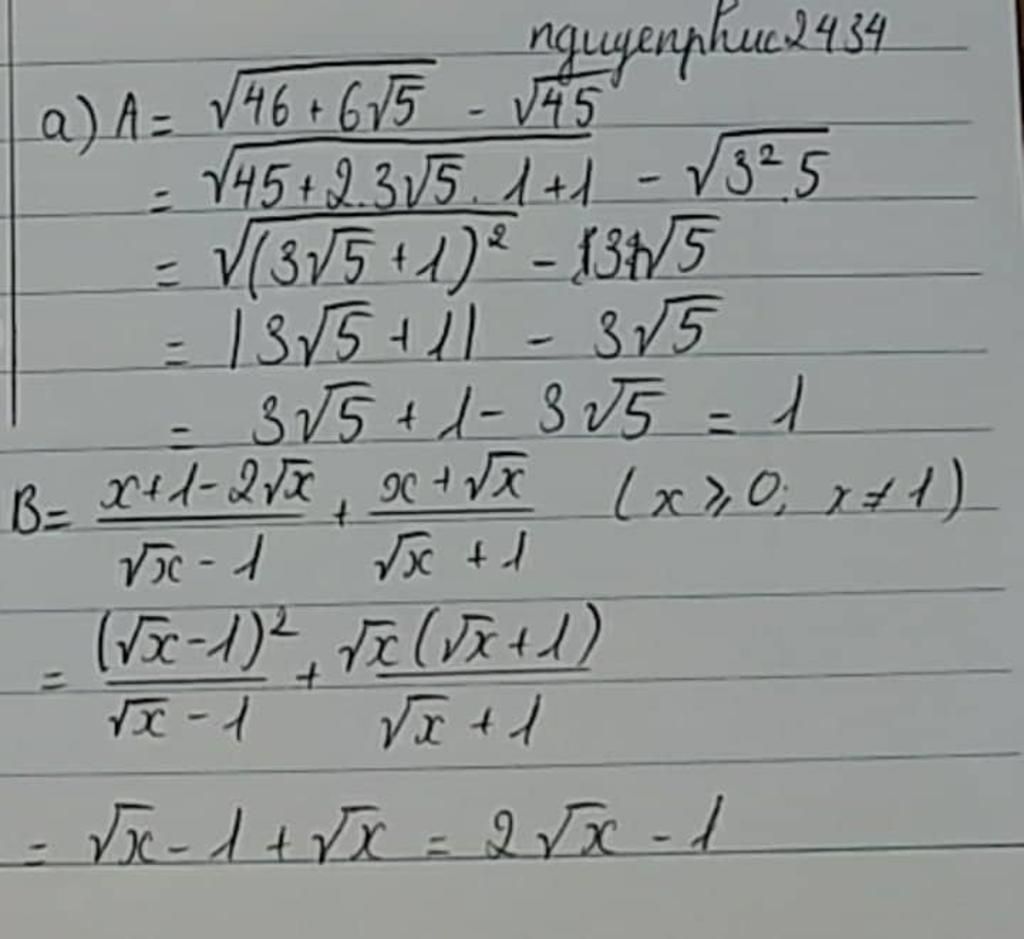 nguyenphuc2434
a) A = √(46 + 6√5) - √45
= √(45 + 2.3√5.1 + 1) - √(3².5)
= √((3√5 + 1)²) - |3|√5
= |3√5 + 1| - 3√5
= 3√5 + 1 - 3√5 = 1
B = (x + 1 - 2√x)/(√x - 1) + (x + √x)/(√x + 1) (x ≥ 0; x ≠ 1)
= (√x - 1)²/(√x - 1) + √x(√x + 1)/(√x + 1)
= √x - 1 + √x = 2√x - 1